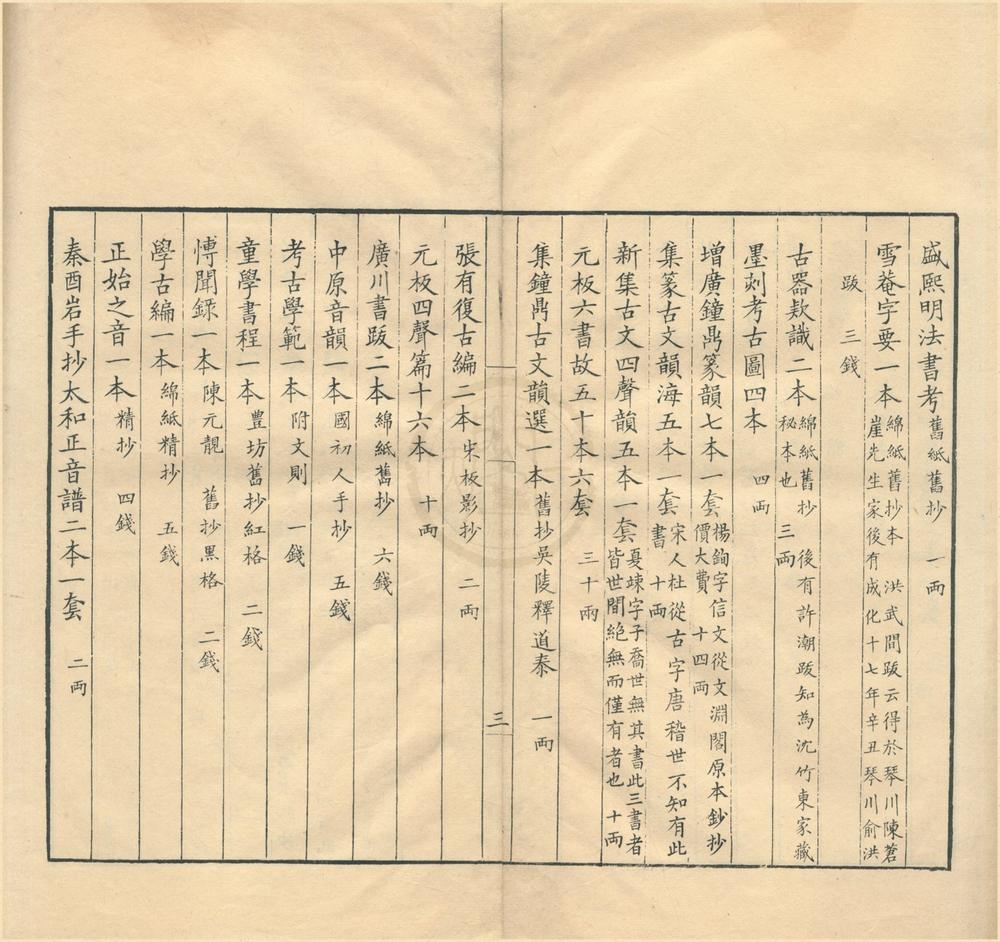 盛熙明法書考舊紙舊抄 一両
雪菴字要一本綿紙舊抄本 洪武間跋云得於琴川陳蒼崖先生家後有成化十七年辛丑琴川俞洪
跋 三錢
古器欵識二本綿紙舊抄秘本也 後有許潮跋知為沈竹東家藏 三両
墨刻考古圖四本 四両
增廣鐘鼎篆韻七本一套楊鉤字信文從文淵閣原本鈔抄價大費 十四両
集篆古文韻海五本一套宋人杜從古字唐稽世不知有此書 十両
新集古文四聲韻五本一套夏竦字子喬世無其書此三書者皆世間絕無而僅有者也 十両
元板六書故五十本六套 三十兩
集鐘鼎古文韻選一本舊抄吳陵釋道泰 一両
三
張有復古編二本宋板影抄 二両
元板四聲篇十六本 十両
廣川書跋二本綿紙舊抄 六錢
中原音韻一本國初人手抄 五錢
考古學範一本附文則 一錢
童學書程一本豊坊舊抄紅格 二錢
愽聞録一本陳元靚 舊抄黑格 二錢
學古編一本綿紙精抄 五錢
正始之音一本精抄 四錢
秦酉岩手抄太和正音譜二本一套 二両